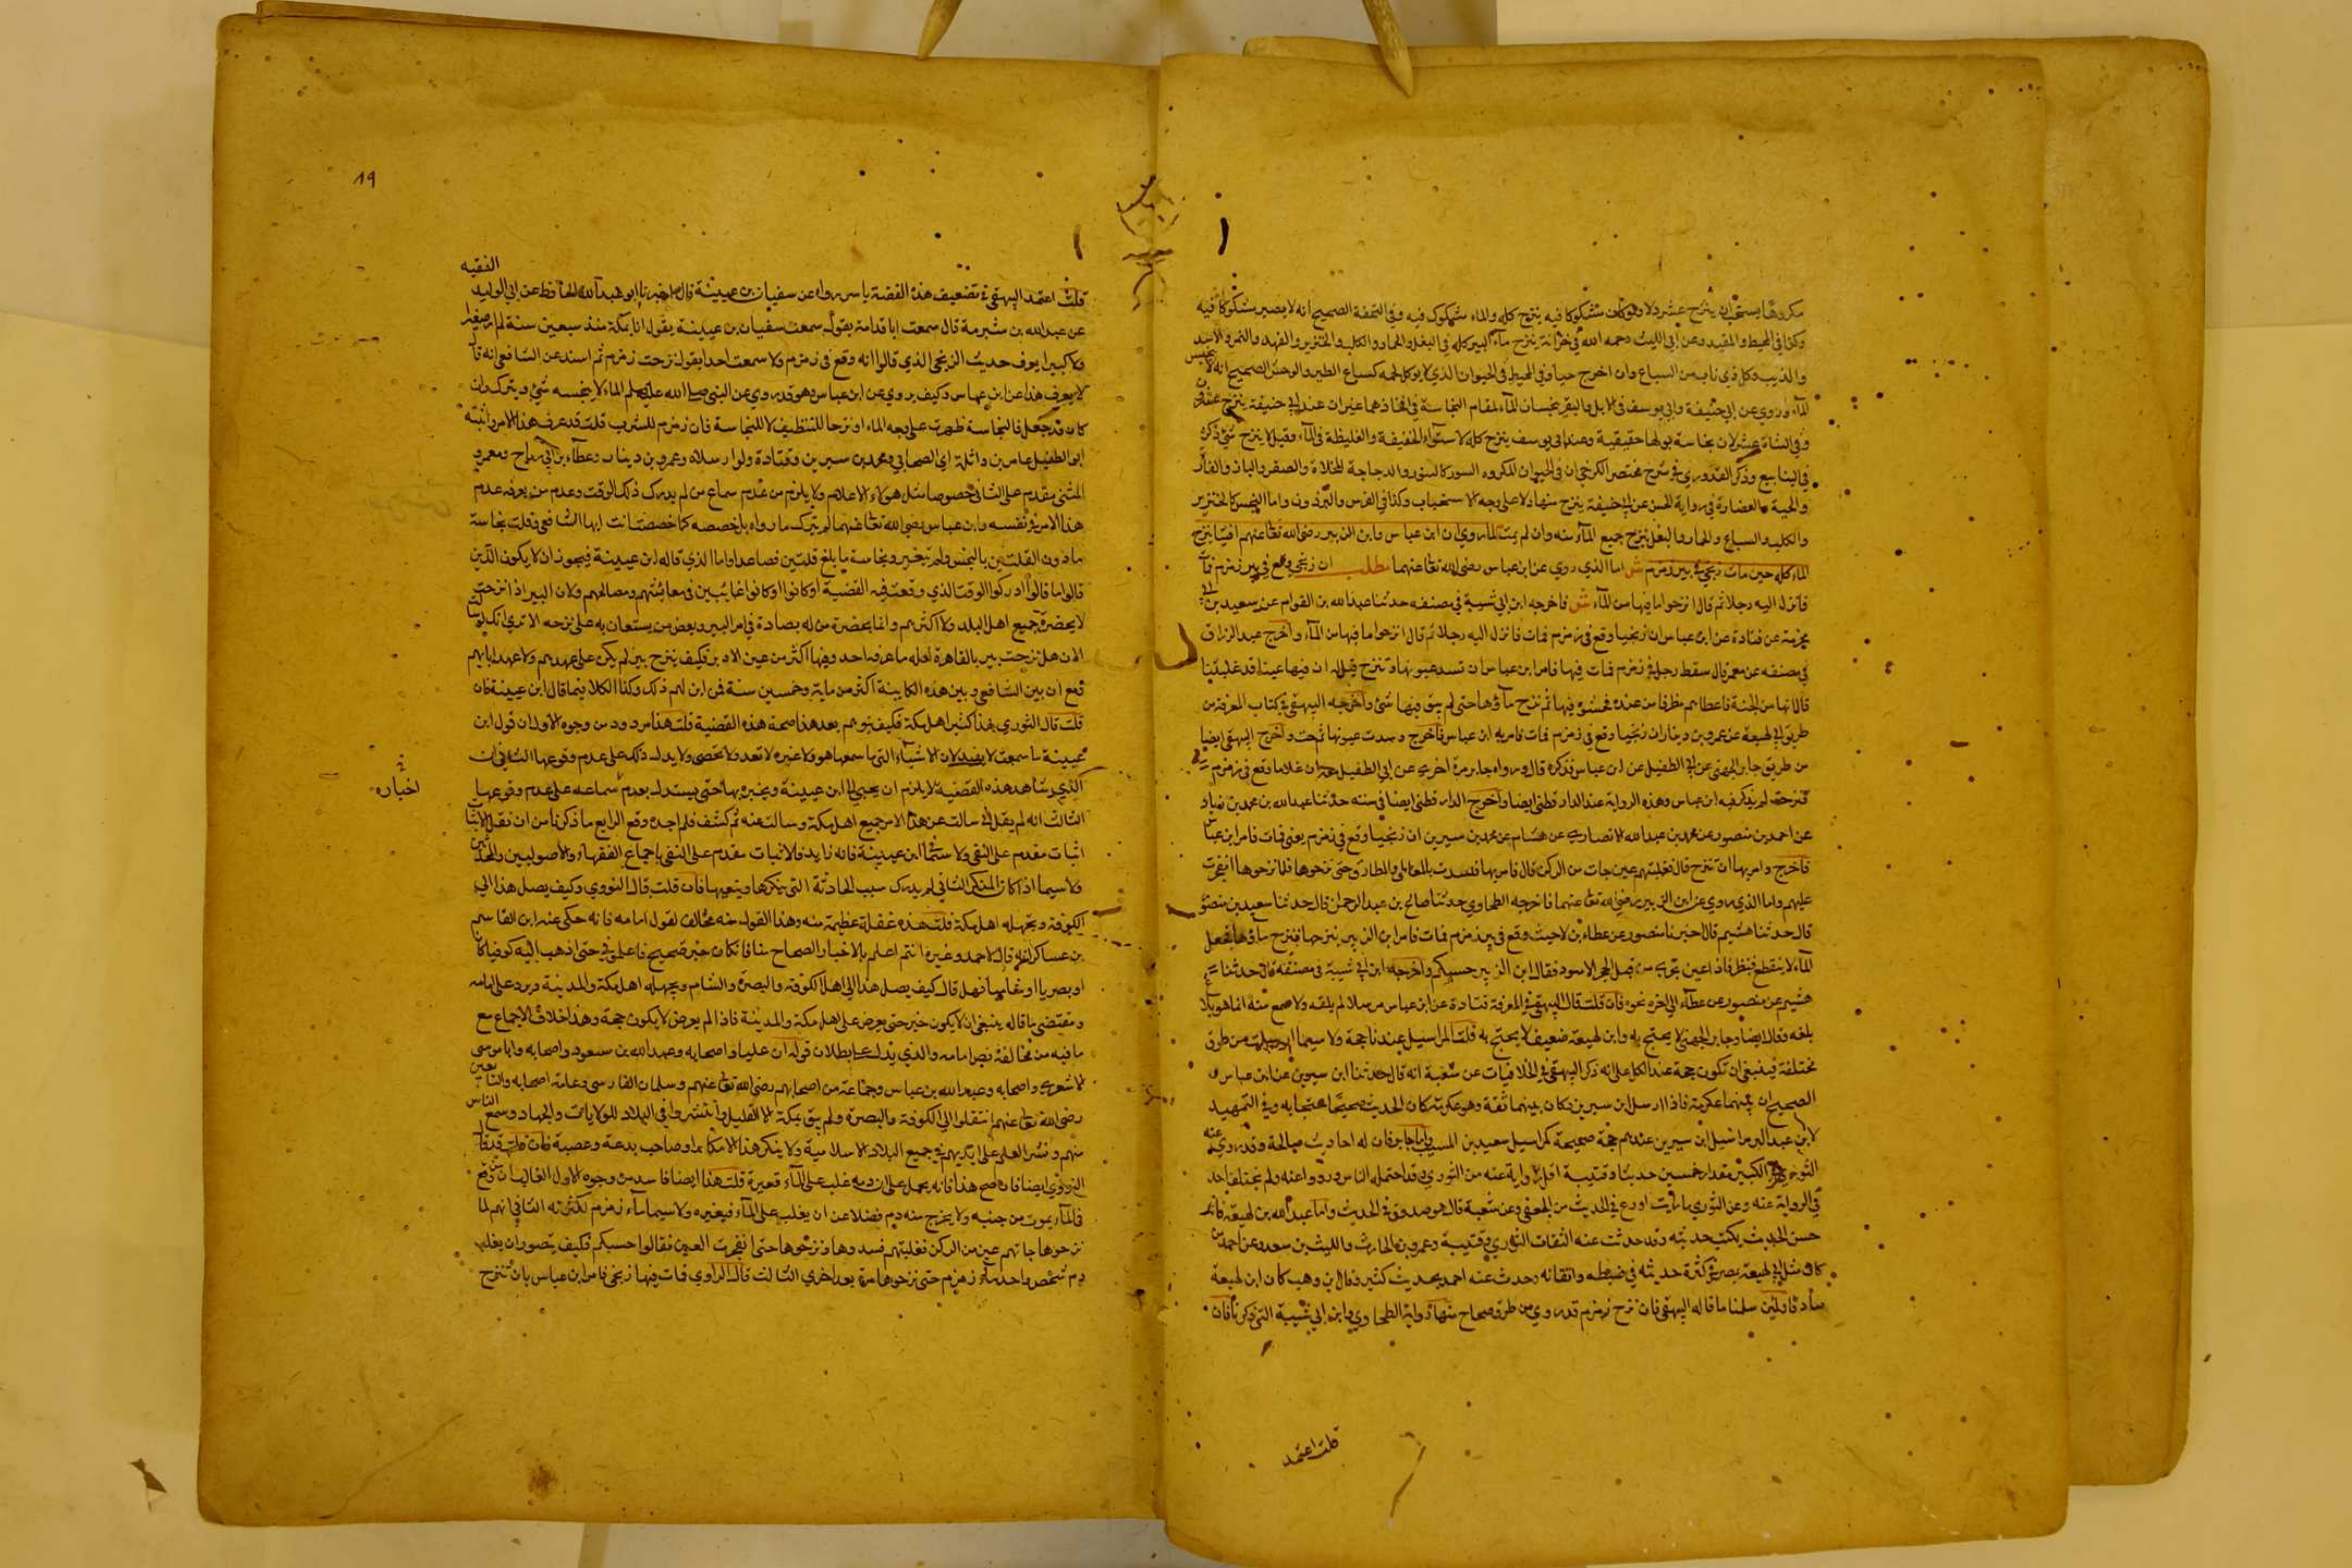 مكروها يستحب ان ينزح عشر دلا ولو كان مشكوكا فيه ينزح كله والماء مشكوك فيه وفي التحفة الصحيح انه لا يصير مشكوكا فيه
وكذا في المحيط والمفيد وعن ابي الليث رحمه الله في خزانته ينزح ماء البير كله في البغل والحمار والكلب والخنزير والفهد والنمر والاسد
والذيب وكل ذي ناب من السباع وان اخرج حيا وفي المحيط وفي الحيوان الذي لا يوكل لحمه كسباع الطير والوحش الصحيح انه لا ينجس
الماء وروي عن ابي حنيفة وابي يوسف في الابل والبقر ينجسان الماء لمقام النجاسة في افخاذهما غير ان عند ابي حنيفة ينزح عشرون
وفي الشاة عشر لان نجاسة بولها حقيقية وعند ابي يوسف ينزح كله لاستواء الخفيفة والغليظة في الماء وقيل لا ينزح شئ ذكره
في الينابيع وذكر القدوري في شرح مختصر الكرخي ان في الحيوان المكروه السور كالسنور والدجاجة المخلاة والصقر والباز والفار
والحية والعضارة في رواية الحسن عن ابي حنيفة ينزح منها دلا على وجه الاستحباب وكذا في الفرس والبرذون واما النجس كالخنزير
والكلب والسباع والحمار والبغل ينزح جميع الماء منه وان لم يمت لما روي ان ابن عباس وابن الزبير رضي الله تعا عنهم افتيا بنزح
الماء كله حين مات زنجي في بير زمزم ش اما الذي روي عن ابن عباس رضي الله تعا عنهما مطلب ان زنجي وقع في بير زمزم فمات
فانزل اليه رجلا ثم قال انزحوا ما فيها من الماء ش فاخرجه ابن ابي شيبة في مصنفه حدثنا عبد الله بن القوام عن سعيد بن ابي
عن قتادة عن ابن عباس ان زنجيا وقع في زمزم فمات فانزل اليه رجلا ثم قال انزحوا ما فيها من الماء واخرج عبد الرزاق
في مصنفه عن معمر قال سقط رجل في زمزم فمات فيها فامر ابن عباس ان تسد عيونها وتنزح قيل له ان فيها عينا قد غلبتنا
قال انها من الجنة فاعطاهم مطرفا من عنده فحشوه فيها ثم نزح ماؤها حتى لم يبق فيها شئ واخرجه البيهقي في كتاب المعرفة من
طريق ابي لهيعة عن عمرو بن دينار ان زنجيا وقع في زمزم فمات فامر به ابن عباس فاخرج وسدت عيونها ثم نزحت واخرج البيهقي ايضا
من طريق جابر الجعفي عن ابي الطفيل عن ابن عباس فذكره قال ورواه جابر مرة اخرى عن ابي الطفيل نفسه ان غلاما وقع في زمزم
فنزحت لم يذكر فيه ابن عباس وهذه الرواية عند الدارقطني ايضا واخرج الدارقطني ايضا في سننه حدثنا عبد الله بن محمد بن زياد
عن احمد بن منصور عن محمد بن عبد الله الانصاري عن هشام عن محمد بن سيرين ان زنجيا وقع في زمزم يعني فمات فامر ابن عباس
فاخرج وامر بها ان تنزح قال فغلبتهم عين جات من الركن قال فامر بها فسدت بالقباطي والمطارق حتى نزحوها فلما نزحوها انفجرت
عليهم واما الذي روي عن ابن الزبير رضي الله تعا عنهما فاخرجه الطحاوي حدثنا صالح بن عبد الرحمن قال حدثنا سعيد بن منصور
قال حدثنا هشيم قال اخبرنا منصور عن عطاء بن لا حيث وقع في بير زمزم فمات فامر ابن الزبير بنزحها فنزح ماؤها فجعل
الماء لا ينقطع فنظر فاذا عين تجري من قبل الحجر الاسود فقال ابن الزبير حسبكم واخرجه ابن ابي شيبة في مصنفه قال حدثنا
هشيم عن منصور عن عطاء الى اخره نحوه فان قلت قال البيهقي في المعرفة قتادة عن ابن عباس مرسلا لم يلقه ولا سمع منه انما هو بلاغ
بلغه وقال ايضا وجابر الجعفي لا يحتج به وابن لهيعة ضعيف لا يحتج به قلت المراسيل عندنا حجة ولا سيما من طرق
مختلفة فينبغي ان تكون حجة عند الكل على انه ذكر البيهقي في الخلافيات عن شعبة انه قال حدثنا ابن سيرين عن ابن عباس و
الصحيح ان بينهما عكرمة فاذا ارسل ابن سيرين وكان بينهما ثقة وهو عكرمة كان الحديث صحيحا محتجا به وفي التمهيد
لابن عبد البر مراسيل ابن سيرين عندهم حجة صحيحة كمراسيل سعيد بن المسيب واما جابر فان له احاديث صالحة وقد روى عنه
الثوري الكبير مقدار خمسين حديثا وقتيبة اقل رواية عنه من الثوري وقد احتمله الناس ورووا عنه ولم يختلف احد
في الرواية عنه وعن الثوري ما رايت اورع في الحديث من الجعفي وعن شعبة قال هو صدوق في الحديث واما عبد الله بن لهيعة فانه
حسن الحديث يكتب حديثه وقد حدث عنه الثقات الثوري وقتيبة وعمرو بن الحارث والليث بن سعد وعن احمد من
كان مثل ابي لهيعة بمصر في كثرة حديثه في ضبطه واتقانه وحدث عنه احمد بحديث كثير وقال بن وهب كان ابن لهيعة
صادقا ولئن سلمنا ما قاله البيهقي فان نزح زمزم قد روي من طرق صحاح منها رواية الطحاوي وابن ابي شيبة التي ذكرنا فان
قلت اعتمد
19
الفقيه
قلت اعتمد البيهقي في تضعيف هذه القضة باسر رواه عن سفيان بن عيينة قال اخبرنا ابو عبد الله الحافظ عن ابي الوليد
عن عبد الله بن شبرمة قال سمعت ابا قدامة يقول سمعت سفيان بن عيينة يقول انا بمكة منذ سبعين سنة لم ار صغيرا
ولا كبيرا يعرف حديث الزنجي الذي قالوا انه وقع في زمزم ولا سمعت احدا يقول نزحت زمزم ثم اسند عن الشافعي انه قال
لا يعرف هذا عن ابن عباس وكيف يروي عن ابن عباس وهو قد روي عن النبي صلى الله عليه وسلم الماء لا ينجسه شئ ويترك وان
كان قد جعل فالنجاسة ظهرت على وجه الماء او نزحا للتنظيف لا للنجاسة فان زمزم للشرب قلت قد عرف هذا الامر واثبته
ابو الطفيل عامر بن واثلة اي الصحابي ومحمد بن سيرين وقتادة ولو ارسلاه وعمرو بن دينار وعطاء بن ابي رباح ومعمر و
المثنى مقدم على الثاني خصوصا مثل هولاء الاعلام ولا يلزم من عدم سماع من لم يدرك ذلك الوقت وعدم من يعرفه عدم
هذا الامر في نفسه وابن عباس رضي الله تعا عنهما لم يترك ما رواه بل خصصه كما خصصت انت ايها الشافعي وقلت بنجاسة
ما دون القلتين بالنجس ولم تتغير ونجاسة ما بلغ قلتين فصاعدا واما الذي قاله ابن عيينة فيجوز ان لا يكون الذين
قالوا ما قالوا ادركوا الوقت الذي وقعت فيه القضية او كانوا اوكانوا غائبين في معائشهم ومصالحهم ولان البير اذا نزحت
لا يحضره جميع اهل البلد ولا اكثرهم وانما يحضره من له بصادة في امر البير وبعض من يستعان به على نزحه الا ترى انك لو سالت
الان هل نزحت بير بالقاهرة لعله ما عرفه احد وفيها اكثر من عين الاد بز فكيف ينزح بير لم يكن على عهدهم ولا عهد ابائهم
فمع ان بين الشافعي وبين هذه الكاينة اكثر من ماية وخمسين سنة فمن اين لهم ذلك وكذا الكلا فيما قال ابن عيينة فان
قلت قال الثوري هذا كثير اهل مكة فكيف يتوهم بعد هذا صحة هذه القضية قلت هذا مردود من وجوه الاول ان قول ابن
عيينة ما سمعت لا يفيد لان الاشياء التي ما سمعها هو ولا غيره لا تعد ولا تحصى ولا يدل ذلك على عدم وقوعها الثاني ان
الذي شاهد هذه القضية لا يلزم ان يحيى الى ابن عيينة ويخبره بها حتى يستدل بعدم سماعه على عدم وقوعها
اخباره
الثالث انه لم يقل اني سالت عن هذا الامر جميع اهل مكة وسالت عنه ثم كشف فلم اجده وقع الرابع ما ذكرنا من ان نقل الاثبات
اثبات مقدم على النفي ولا سيما ابن عيينة فانه زايد فالاثبات مقدم على النفي باجماع الفقهاء والاصوليين والمحدثين
ولا سيما اذا كان المنكر الثاني لم يدرك سبب الحادثة التي ينكرها وينفيها فان قلت قال النووي وكيف يصل هذا الى
الكوفة ويجهله اهل مكة قلت هذه غفلة عظيمة منه وهذا القول منه مخالف لقول امامه فانه حكى عنه ابن القاسم
بن عساكر انه قال لاحمد وغيره انتم اعلم بالاخبار الصحاح منا فان كان خبر صحيح فاعلموني حتى اذهب اليه كوفيا كان
او بصريا او شاميا فهل قال كيف يصل هذا الى اهل الكوفة والبصرة والشام ويجهله اهل مكة والمدينة ويرد على امامه
ومقتضى ما قاله ينبغي ان لا يكون خبر حتى يعرض على اهل مكة والمدينة فاذا لم يعرض لا يكون حجة وهذا خلاف الاجماع مع
ما فيه من مخالفة نص امامه والذي يدل على بطلان قوله ان عليا واصحابه وعبد الله بن مسعود واصحابه وابا موسى
الاشعري واصحابه وعبد الله بن عباس وجماعة من اصحابهم رضي الله تعا عنهم وسلمان الفارسي وعامة اصحابه والتابعين
رضي الله تعا عنهم انتقلوا الى الكوفة والبصرة ولم يبق بمكة الا القليل وانتشروا في البلاد للولايات والجهاد وسمع الناس
منهم ونشر العلم على ايديهم في جميع البلاد الاسلامية ولا ينكر هذا الا مكابر او صاحب بدعة وعصبة فان قلت قد قال
النووي ايضا فان صح هذا فانه يحمل على ان دمه غلب على الماء فغيره قلت هذا ايضا فاسد من وجوه الاول الغالب ان من وقع
في الماء يموت من جنبه ولا يخرج منه دم فضلا عن ان يغلب على الماء فيغيره ولا سيما ماء زمزم لكثرته الثاني انهم لما
نزحوها جاتهم عين من الركن فغلبتهم فسدوها ونزحوها حتى انفجرت العين فقالوا حسبكم فكيف يتصور ان يغلب
دم شخص واحد ماء زمزم حتى نزحوها مرة بعد اخرى الثالث قال الراوي فمات فيها زنجي فامر ابن عباس بان تنزح